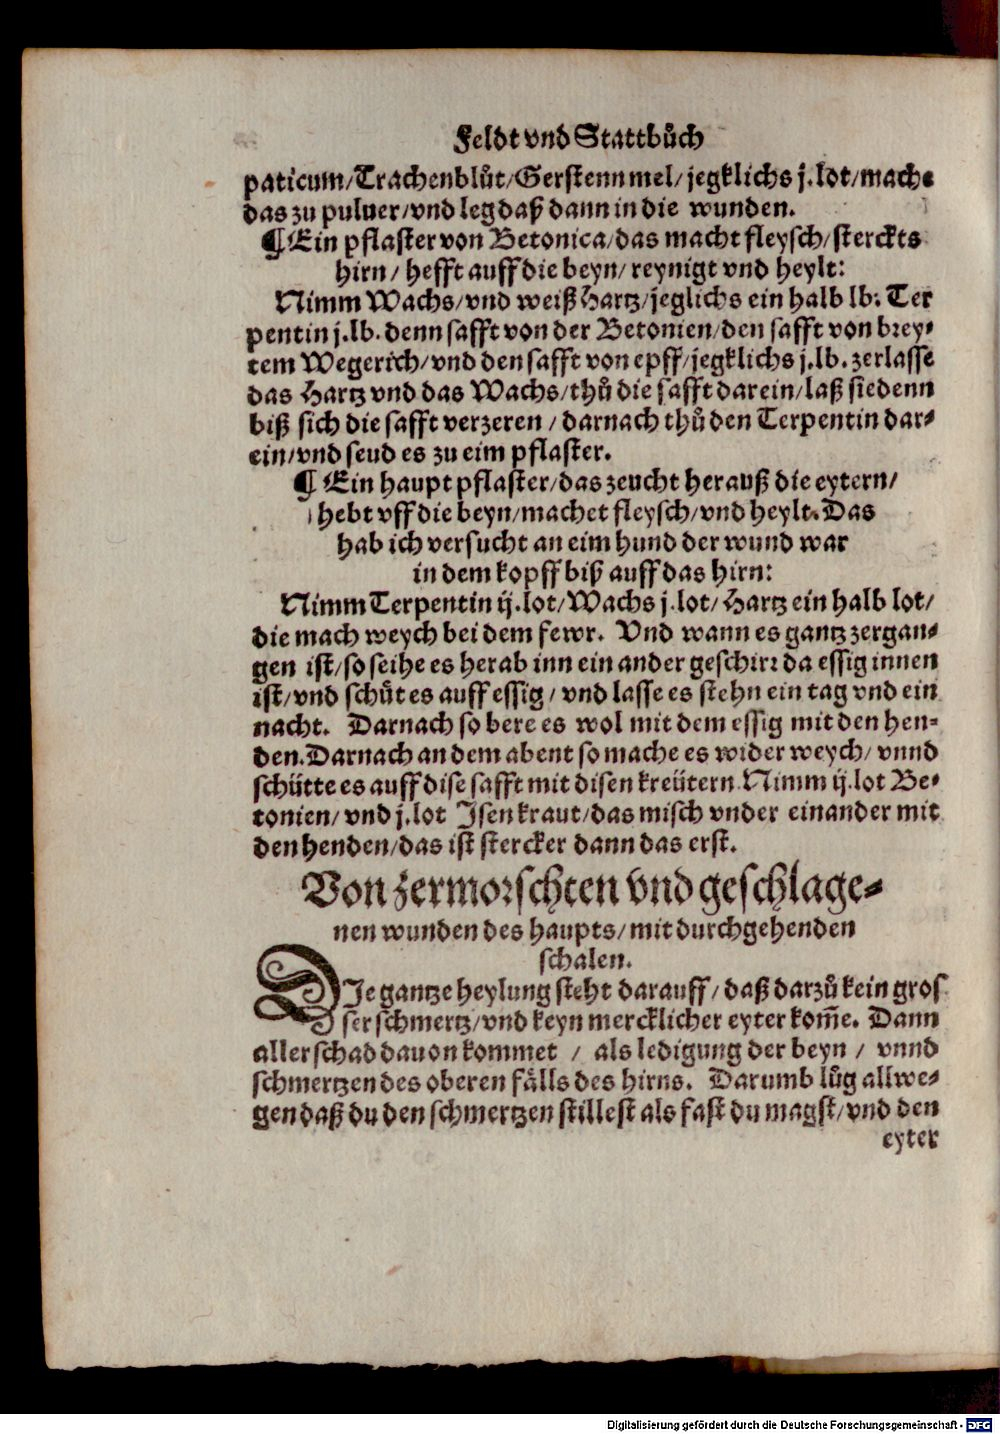 Feldt vnd Stattbůch
paticum/Trachenblůt/Gerstenn mel/ jegklichs j.lot/mache
das zu puluer/vnd leg daß dann in die wunden.
¶Ein pflaster von Betonica/das macht fleysch/sterckts
hirn/ hefft auff die beyn/ reynigt vnd heylt:
Nimm Wachs/vnd weiß Hartz/jeglichs ein halb lb. Ter
pentin j.lb. denn safft von der Betonien/den safft von brey-
tem Wegerich/vnd den safft von epff/jegklichs j.lb. zerlasse
das Hartz vnd das Wachs/thů die safft darein/laß siedenn
biß sich die safft verzeren / darnach thů den Terpentin dar-
ein/vnd seud es zu eim pflaster.
¶ Ein haupt pflaster/das zeucht herauß die eytern/
hebt vff die beyn/machet fleysch/vnd heylt. Das
hab ich versucht an eim hund der wund war
in dem kopff biß auff das hirn:
Nimm Terpentin ij.lot/Wachs j.lot/ Hartz ein halb lot/
die mach weych bei dem fewr. Vnd wann es gantz zergan-
gen ist/so seihe es herab inn ein ander geschirr da essig innen
ist/vnd schüt es auff essig / vnd lasse es stehn ein tag vnd ein
nacht. Darnach so bere es wol mit dem essig mit den hen-
den.Darnach an dem abent so mache es wider weych/ vnnd
schütte es auff dise safft mit disen kreütern Nimm ij.lot Be-
tonien/ vnd j.lot Isenkraut/das misch vnder einander mit
den henden/das ist stercker dann das erst.
Von zermorschten vnd geschlage-
nen wunden des haupts/mit durchgehenden
schalen.
DIe gantze heylung steht darauff/ daß darzů kein gros
ser schmertz/vnd keyn mercklicher eyter kom̄e. Dann
aller schad dauon kommet / als ledigung der beyn / vnnd
schmertzen des oberen fälls des hirns. Darumb lůg allwe-
gen daß du den schmertzen stillest als fast du magst/vnd den
eyter
Digitalisierung gefördert durch die Deutsche Forschungsgemeinschaft - DFG